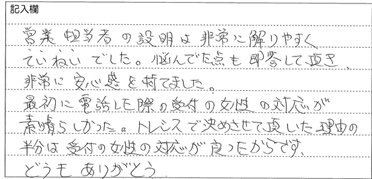 記入欄
営業担当者の説明は非常に解りやすく
ていねいでした。悩んでた点も即答して頂き、
非常に安心感を持てました。
最初に電話した際の受付の女性の対応が
素晴らしかった。トレシスで決めさせて頂いた理由の
半分は受付の女性の対応が良かったからです。
どうもありがとう